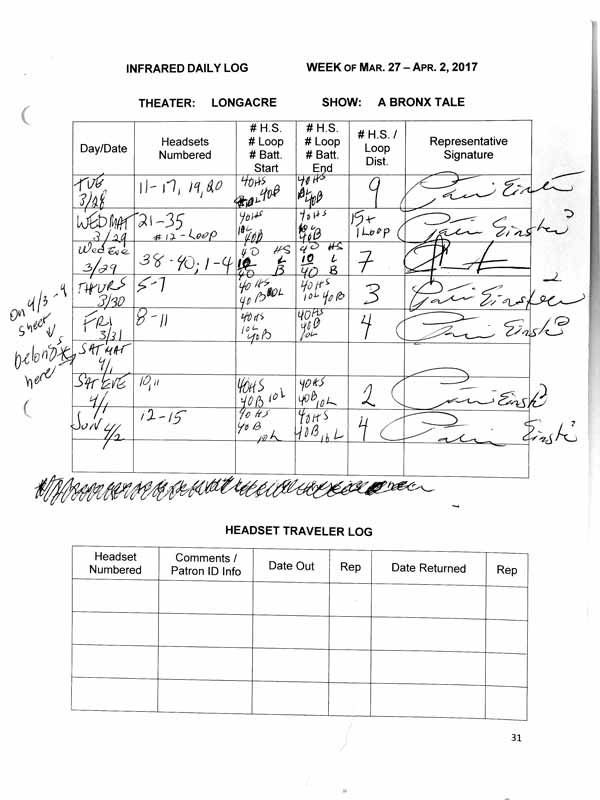 INFRARED DAILY LOG WEEK OF MAR. 27 – APR. 2, 2017
THEATER: LONGACRE SHOW: A BRONX TALE
Day/Date Headsets Numbered # H.S. # Loop # Batt. Start # H.S. # Loop # Batt. End # H.S. / Loop Dist. Representative Signature
TUE 3/28 11-17, 19, 20 40HS 10L 40B 40HS 10L 40B 9
WED MAT 3/29 21-35 #12-Loop 40HS 10L 40B 40HS 10L 40B 15+ 1Loop
Wed Eve 3/29 38-40; 1-4 40 HS 10 L 40 B 40 HS 10 L 40 B 7
THURS 3/30 5-7 40HS 40B 10L 40HS 10L 40B 3
FRI 3/31 8-11 40HS 10L 40B 40HS 40B 10L 4
SAT MAT 4/1
SAT EVE 4/1 10,11 40HS 40B 10L 40HS 40B 10L 2
SUN 4/2 12-15 40HS 40B 10L 40HS 40B 10L 4
On 4/3-9
sheet
belongs
here
HEADSET TRAVELER LOG
Headset Numbered Comments / Patron ID Info Date Out Rep Date Returned Rep
31